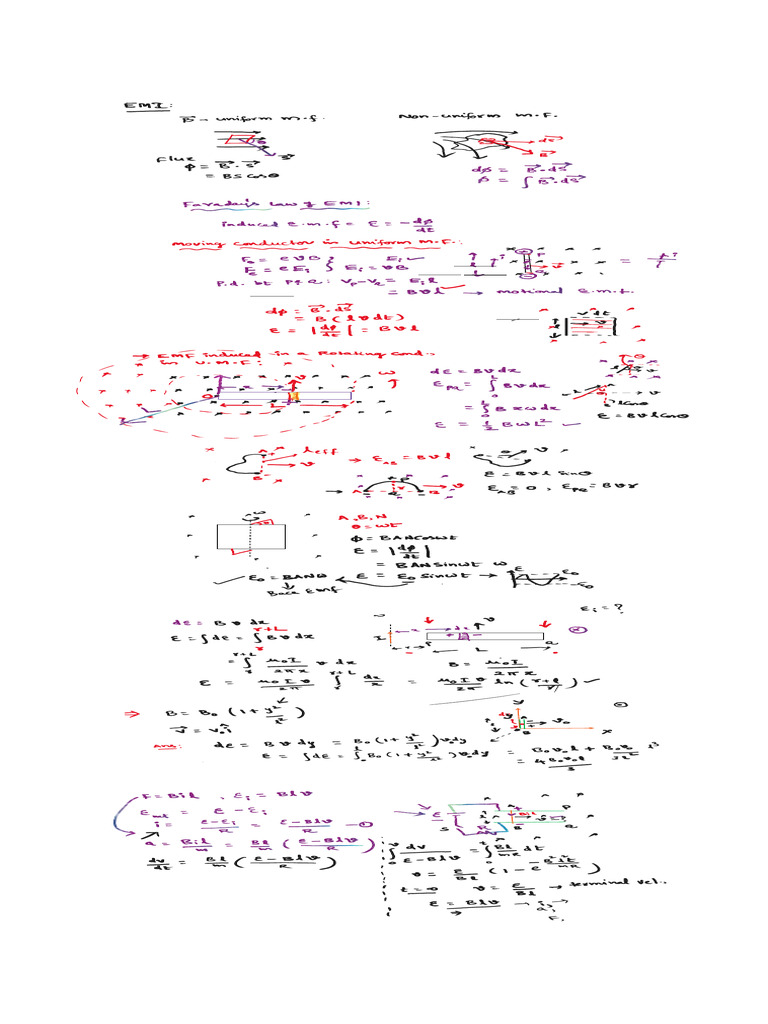 EMI:
B⃗ - uniform m.f.
Non-uniform M.F.
Flux
ϕ = B⃗ . S⃗
= BS cosθ
dS⃗
B⃗
dϕ = B⃗ . dS⃗
ϕ = ∫ B⃗ . dS⃗
Faraday's Law of EMI:
induced e.m.f = ε = - dϕ/dt
moving conductor in uniform M.F.:
Fe = eEi } Ei = vB
P.d. bt P & Q : Vp - VQ = Ei l
= Bvl → motional e.m.f.
dϕ = B⃗ . dS⃗
= B (l v dt)
ε = |dϕ/dt| = Bvl
v dt
→ EMF induced in a Rotating cond..
in U.M.F:
dε = Bv dx
εPQ = ∫₀ᴸ Bv dx
= ∫₀ᴸ B x ω dx
ε = 1/2 B ω L²
l cosθ
ε = Bvl cosθ
leff
→ εAB = Bvl
ε = Bvl sinθ
εAB = 0, εPQ = Bvr
A, B, N
θ = ωt
ϕ = BAN cosωt
ε = |dϕ/dt|
= BAN sinωt ω
ε₀ = BANω
ε = ε₀ sinωt →
Back EMF
Ei = ?
dε = Bv dx
ε = ∫dε = ∫ᵣʳ⁺ᴸ Bv dx
= ∫ᵣʳ⁺ᴸ μ₀I/2πx v dx
B = μ₀I/2πx
ε = μ₀Iv/2π ∫ᵣʳ⁺ᴸ dx/x = μ₀Iv/2π ln(r+l/r)
⇒ B = B₀ (1 + y²/l²)
v⃗ = v₀ î
Ans: dε = Bv dy = B₀(1 + y²/l²) v₀ dy
ε = ∫dε = ∫₀ˡ B₀ (1 + y²/l²) v₀ dy = B₀v₀l + B₀v₀/3l² l³
= 4B₀v₀l/3
F = Bil, εi = Blv
εnet = ε - εi
i = ε-εi/R = ε-Blv/R
a = Bil/m = Bl/m (ε-Blv/R)
dv/dt = Bl/m (ε-Blv/R)
∫₀ᵛ dv/ε-Blv = ∫₀ᵗ Bl/mR dt
v = ε/Bl (1 - e^(-B²l²t/mR))
t = ∞ v = ε/Bl → terminal vel.
ε = Blv